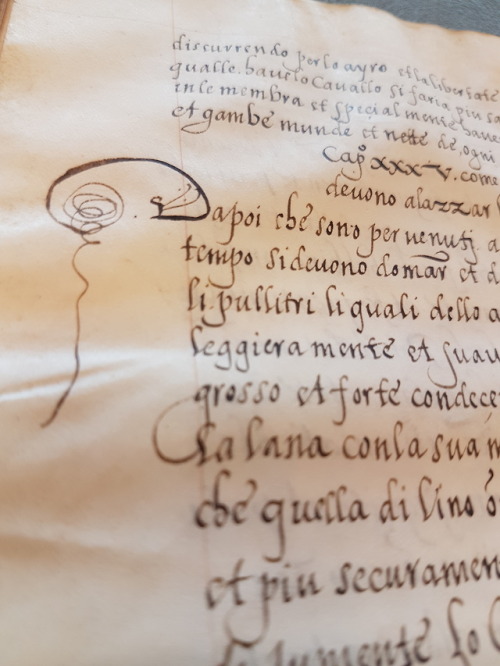 discurrendo per lo ayro et la libertate
qualle. havelo Cavallo si faria piu sa
in le membra et spetial mente have
et gambe munde et nette de, ogni
Capº XXXV. come
devono alazzar
Dapoi che sono per venutj a
tempo si devono domar et d
li pullitri li quali dello a
leggiera mente et suau
grosso et forte condece
la lana con la sua m
che quella di lino o
et piu securamen
lo